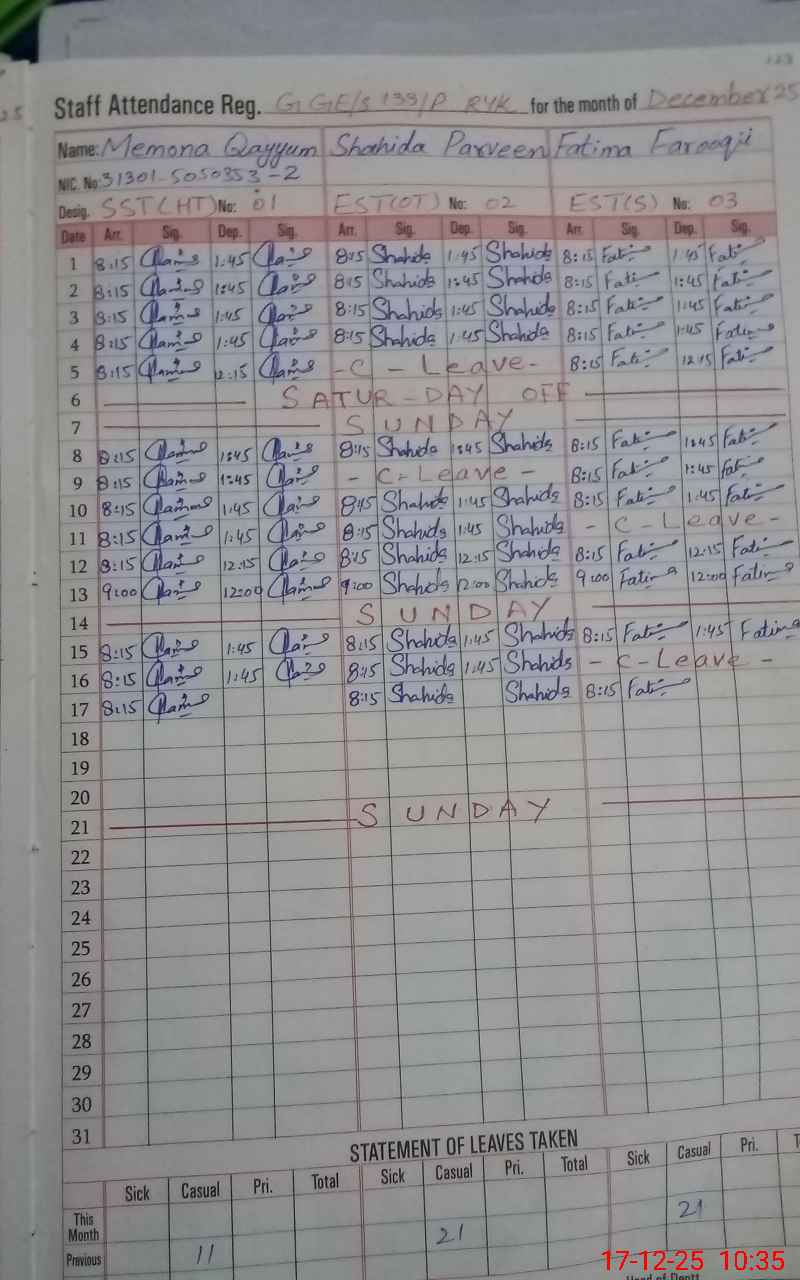 123
Staff Attendance Reg. GGE/S 133/P RYK for the month of December 25
Name: Memona Qayyum Shahida Parveen Fatima Farooqii
NIC. No: 31301-5050353-2
Desig. SST(HT) No: 01 EST(OT) No: 02 EST(S) No: 03
Date Arr. Sig. Dep. Sig. Arr. Sig. Dep. Sig. Arr. Sig. Dep. Sig.
1 8:15 1:45 8:15 Shahida 1:45 Shahida 8:15 Fati 1:45 Fati
2 8:15 1:45 8:15 Shahida 1:45 Shahida 8:15 Fati 1:45 Fati
3 8:15 1:45 8:15 Shahida 1:45 Shahida 8:15 Fati 1:45 Fati
4 8:15 1:45 8:15 Shahida 1:45 Shahida 8:15 Fati 1:45 Fatima
5 8:15 12:15 - C - Leave - 8:15 Fati 12:15 Fati
6 SATUR-DAY OFF
7 SUNDAY
8 8:15 1:45 8:15 Shahida 1:45 Shahida 8:15 Fati 1:45 Fati
9 8:15 1:45 - C - Leave - 8:15 Fati 1:45 Fati
10 8:15 1:45 8:15 Shahida 1:45 Shahida 8:15 Fati 1:45 Fati
11 8:15 1:45 8:15 Shahida 1:45 Shahida - C - Leave -
12 8:15 12:15 8:15 Shahida 12:15 Shahida 8:15 Fati 12:15 Fati
13 9:00 12:00 9:00 Shahida 12:00 Shahida 9:00 Fatima 12:00 Fatima
14 SUNDAY
15 8:15 1:45 8:15 Shahida 1:45 Shahida 8:15 Fati 1:45 Fatima
16 8:15 1:45 8:15 Shahida 1:45 Shahida - C - Leave -
17 8:15 8:15 Shahida Shahida 8:15 Fati
18
19
20
21 SUNDAY
22
23
24
25
26
27
28
29
30
31
STATEMENT OF LEAVES TAKEN
Sick Casual Pri. Total Sick Casual Pri. Total Sick Casual Pri. T
This Month 21
Previous 11 21
17-12-25 10:35